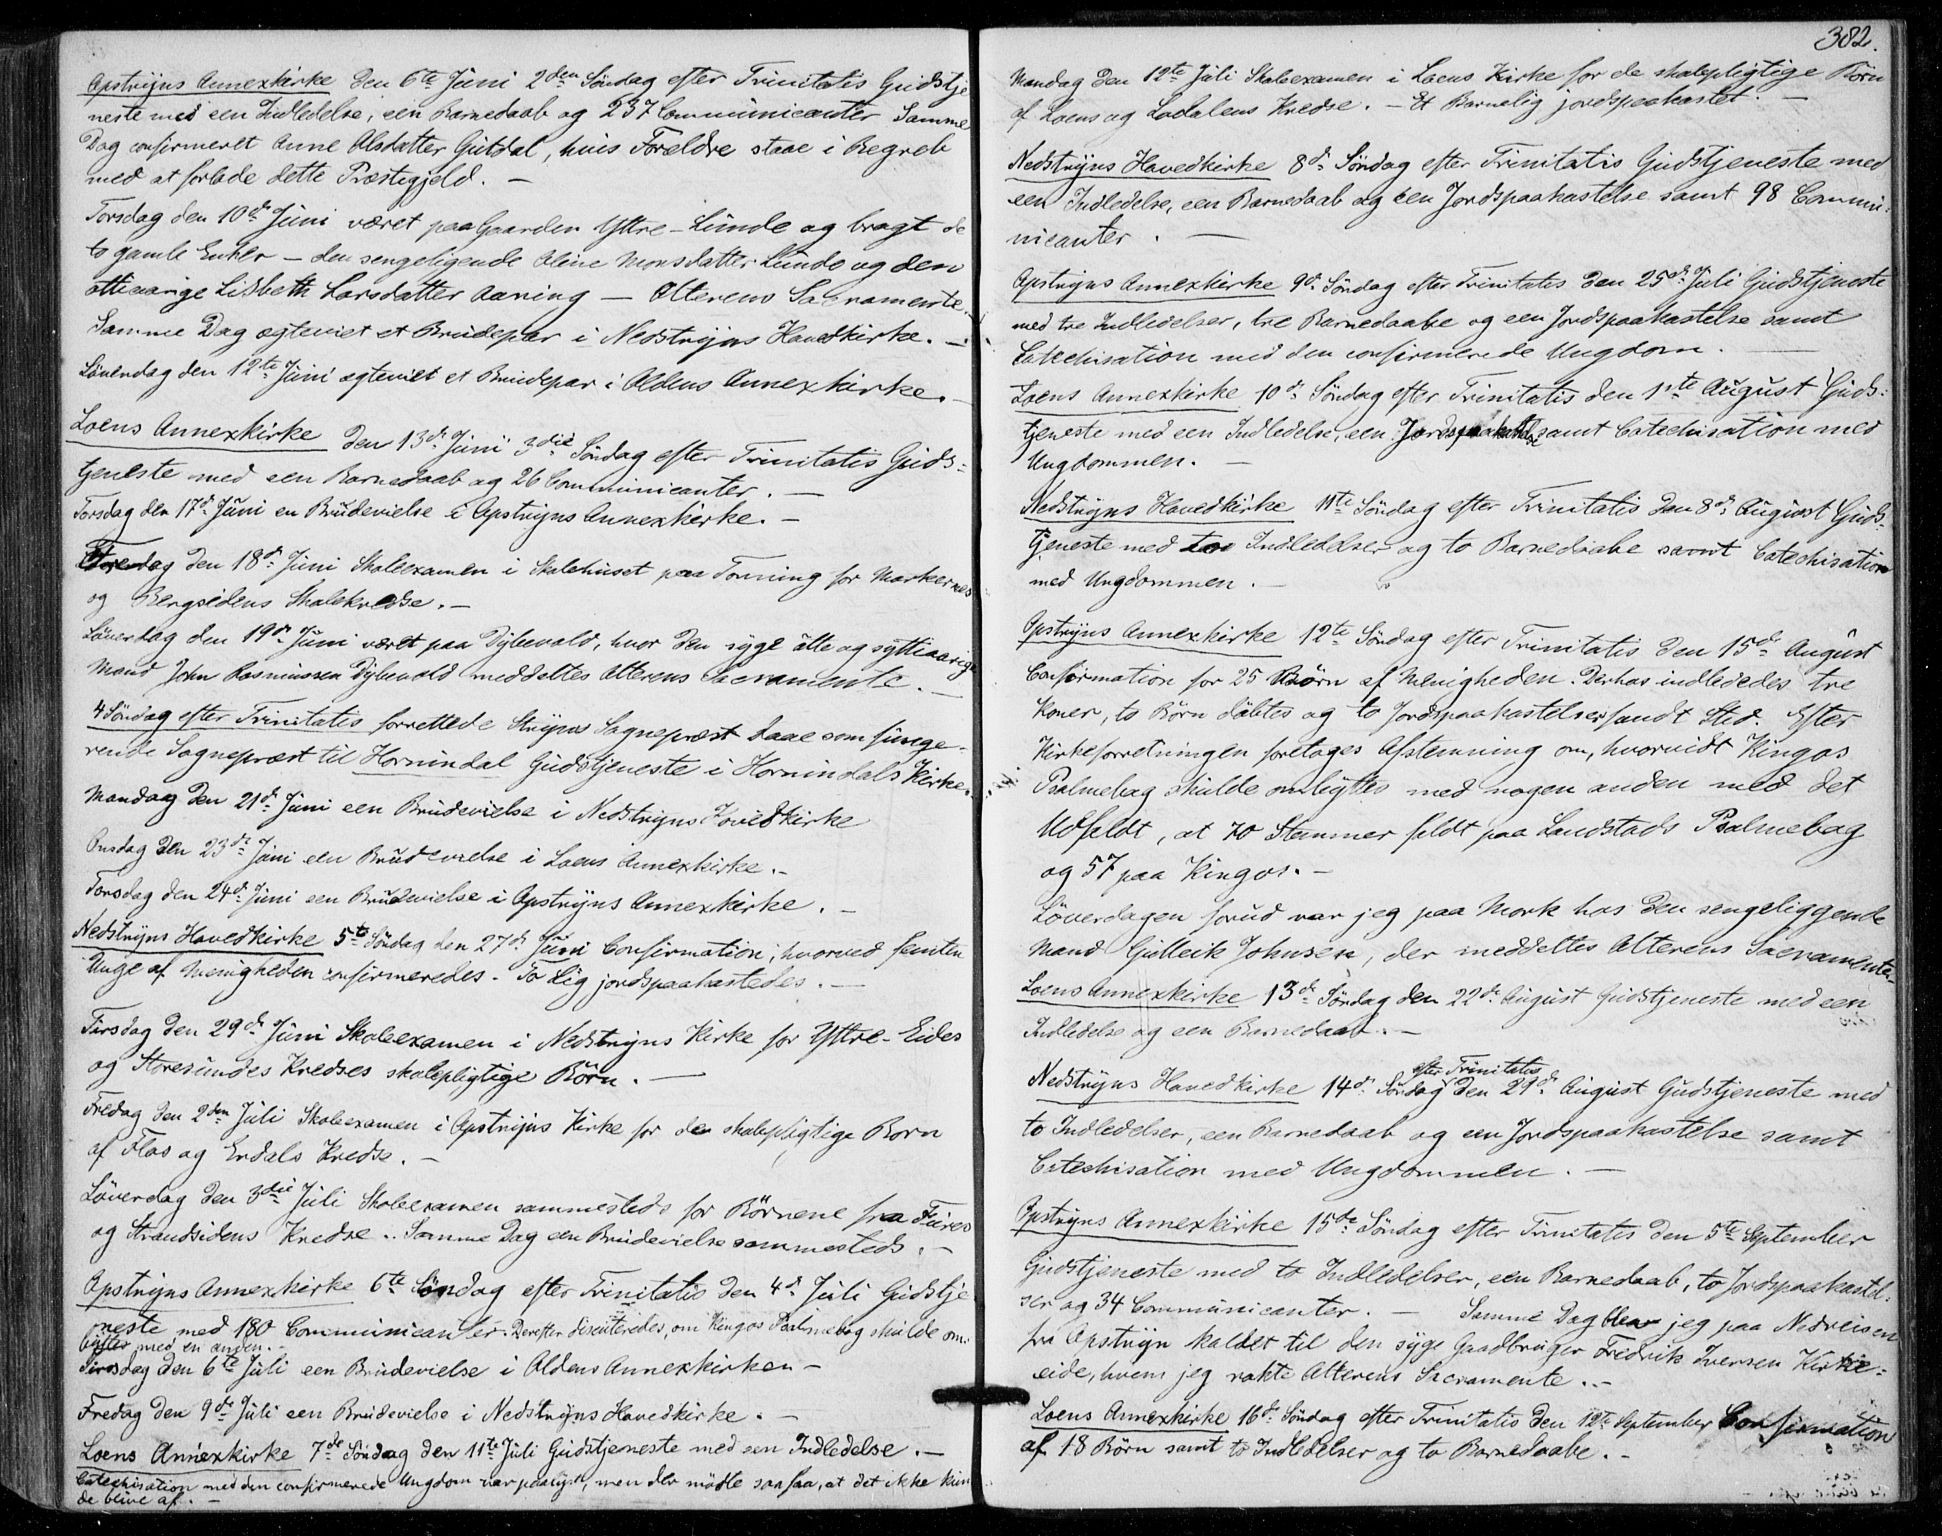 Apstryns Annexkirke den 6te Juni 2den Søndag efter Trinitatis Gudstje
neste med een Indledelse, een Barnedaab og 237 Communicanter Samme
Dag confirmeret Anne Olsdatter Gutdal, hvis Forældre staae i Begreb
med at forlade dette Præstegjeld. —
Torsdag den 10de Juni været paa Gaarden Yttre-Lunde og bragt de
to gamle Enker — den sengeligende Oline Monsdatter Lunde og den
ottiaarige Lisbeth Larsdatter Aaning — Alterens Sacramente.
Samme Dag ægteviet et Brudepar i Nedstryns Hovedkirke. —
Løverdag den 12te Juni ægteviet et Brudepar i Oldens Annexkirke. —
Loens Annexkirke den 13de Juni 3die Søndag efter Trinitatis Guds-
tjeneste med een Barnedaab og 26 Communicanter. —
Torsdag den 17de Juni en Brudevielse i Apstryns Annexkirke. —
Fredag den 18de Juni Skoleexamen i Skolehuset paa Tonning for Markernes
og Bergsidens Skolekredse. —
Løverdag den 19de Juni været paa Dybevold, hvor den syge otte og syttiaarige
Mand John Rasmussen Dybevold meddeltes Alterens Sacramente. —
4 Søndag efter Trinitatis forrettede Stryns Sognepræst Daae som funge-
rende Sognepræst til Hornindal Gudstjeneste i Hornindals Kirke.
Mandag den 21de Juni een Brudevielse i Nedstryns Hovedkirke
Onsdag den 23de Juni een Brudevielse i Loens Annexkirke. —
Torsdag den 24de Juni een Brudevielse i Apstryns Annexkirke. —
Nedstryns Hovedkirke 5te Søndag den 27de Juni Confirmation, hvorved femten
Unge af Menigheden confirmeredes. To Lig jordspaakastedes. —
Tirsdag den 29de Juni Skoleexamen i Nedstryns Kirke for Yttre-Eides
og Storesundes Kredses skolepligtige Børn. —
Fredag den 2den Juli Skoleexamen i Apstryns Kirke for de skolepligtige Børn
af Flos og Erdals Kredse. —
Løverdag den 3die Juli Skoleexamen sammesteds for Børnene fra Fures
og Strandsidens Kredse. Samme Dag een Brudevielse sammesteds. —
Apstryns Annexkirke 6te Søndag efter Trinitatis den 4de Juli Gudstje
neste med 180 Communicanter. Derefter discuteredes, om Kingos Psalmebog skulde om-
byttes med en anden. —
Tirsdag den 6te Juli een Brudevielse i Oldens Annexkirken —
Fredag den 9de Juli een Brudevielse i Nedstryns Hovedkirke. —
Loens Annexkirke 7de Søndag den 11te Juli Gudstjeneste med een Indledelse. —
Catechisation med den confirmerede Ungdom var paalyst, men der mødte saa faa, at det ikke kun
de blive af. —
382.
Mandag den 12te Juli Skoleexamen i Loens Kirke for de skolepligtige Børn
af Loens og Lodalens Kredse. — Et Barnelig jordspaakastet. —
Nedstryns Hovedkirke 8de Søndag efter Trinitatis Gudstjeneste med
een Indledelse, een Barnedaab og een Jordspaakastelse samt 98 Commu-
nicanter. —
Apstryns Annexkirke 9de Søndag efter Trinitatis den 25de Juli Gudstjeneste
med tre Indledelser, tre Barnedaabe og een Jordspaakastelse samt
Catechisation med den confirmerede Ungdom. —
Loens Annexkirke 10de Søndag efter Trinitatis den 1ste August Guds-
tjeneste med een Indledelse, een Jordspaakastelse samt Catechisation med
Ungdommen. —
Nedstryns Hovedkirke 11te Søndag efter Trinitatis den 8de August Guds-
tjeneste med to Indledelser og to Barnedaabe samt Catechisation
med Ungdommen. —
Opstryns Annexkirke 12te Søndag efter Trinitatis den 15de August
Confirmation for 25 Børn af Menigheden. Derhos indlededes tre
Koner, to Børn døbtes og to Jordspaakastelser fandt Sted. Efter
Kirkeforretningen foretages Afstemning om, hvorvidt Kingos
Psalmebog skulde ombyttes med nogen anden med det
Udfaldt, at 70 Stemmer faldt paa Landstads Psalmebog
og 57 paa Kingos. —
Løverdagen forud var jeg paa Mork hos den sengeliggende
Mand Gulleik Johnsen, der meddeltes Alterens Sacramente.
Loens Annexkirke 13de Søndag den 22de August Gudstjeneste med een
Indledelse og een Barnedaab. —
efter Trinitatis
Nedstryns Hovedkirke 14de Søndag den 29de August Gudstjeneste med
to Indledelser, een Barnedaab og een Jordspaakastelse samt
Catechisation med Ungdommen. —
Opstryns Annexkirke 15de Søndag efter Trinitatis den 5te September
Gudstjeneste med to Indledelser, een Barnedaab, to Jordspaakastel-
ser og 34 Communicanter. — Samme Dag blev jeg paa Nedreisen
fra Apstryn kaldet til den syge Gaardbruger Fredrik Iversen Kirke-
eide, hvem jeg rakte Alterens Sacramente. —
Loens Annexkirke 16de Søndag efter Trinitatis den 12te September Confirmation
af 18 Børn samt to Indledelser og to Barnedaabe. —